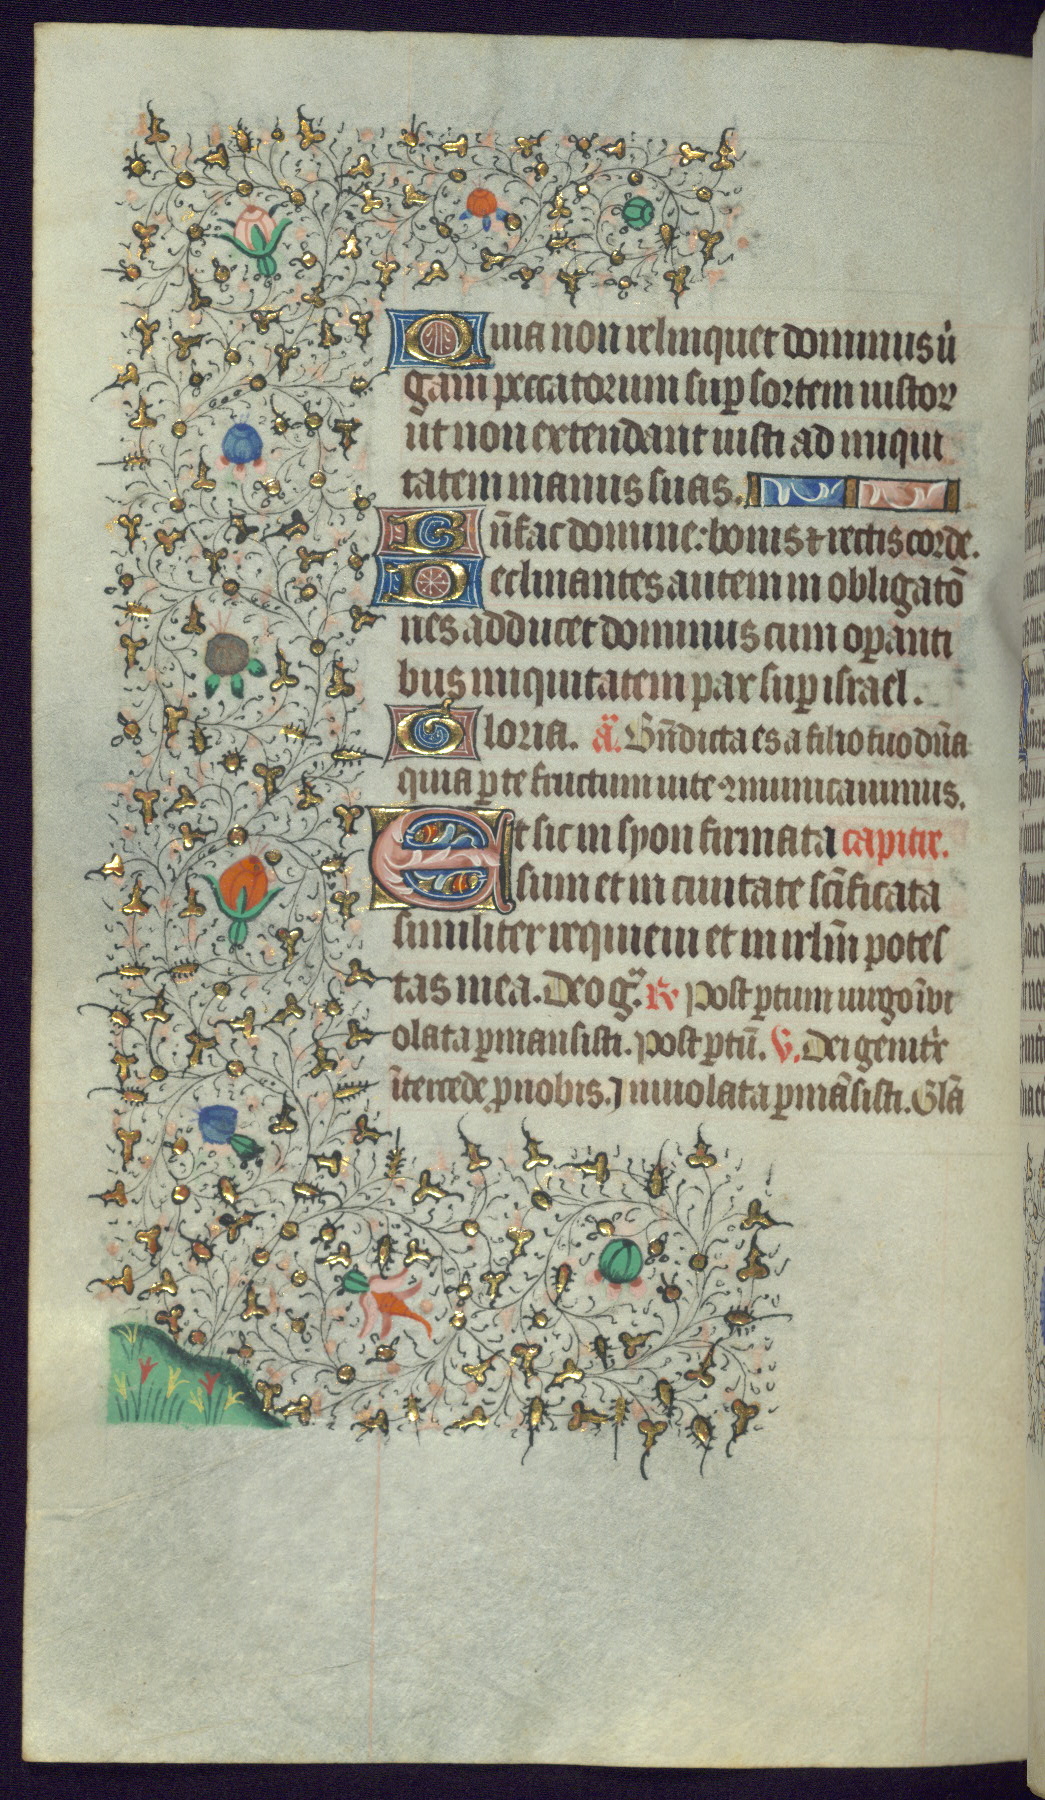 Quia non relinquet dominus ui
gam peccatorum sup sortem iustor
ut non extendant iusti ad iniqui
tatem manus suas.
Bn̄fac domine: bonis & rectis corde.
Declinantes autem in obligatō
nes adducet dominus cum opanti
bus iniquitatem pax sup israel.
Gloria. ā. Bn̄dicta es a filio tuo dn̄a
quia p te fructum uite 2municauimus.
Et sic in syon firmata capitie.
sum et in ciuitate scīficata
similiter requieui et in irlm̄ potes
tas mea. Deo gͣ. R Post ptum uirgo īvi
olata pmansisti. Post ptū. V. Dei genitͥx
ītercede p nobis. Inuiolata pmāsisti. Glā